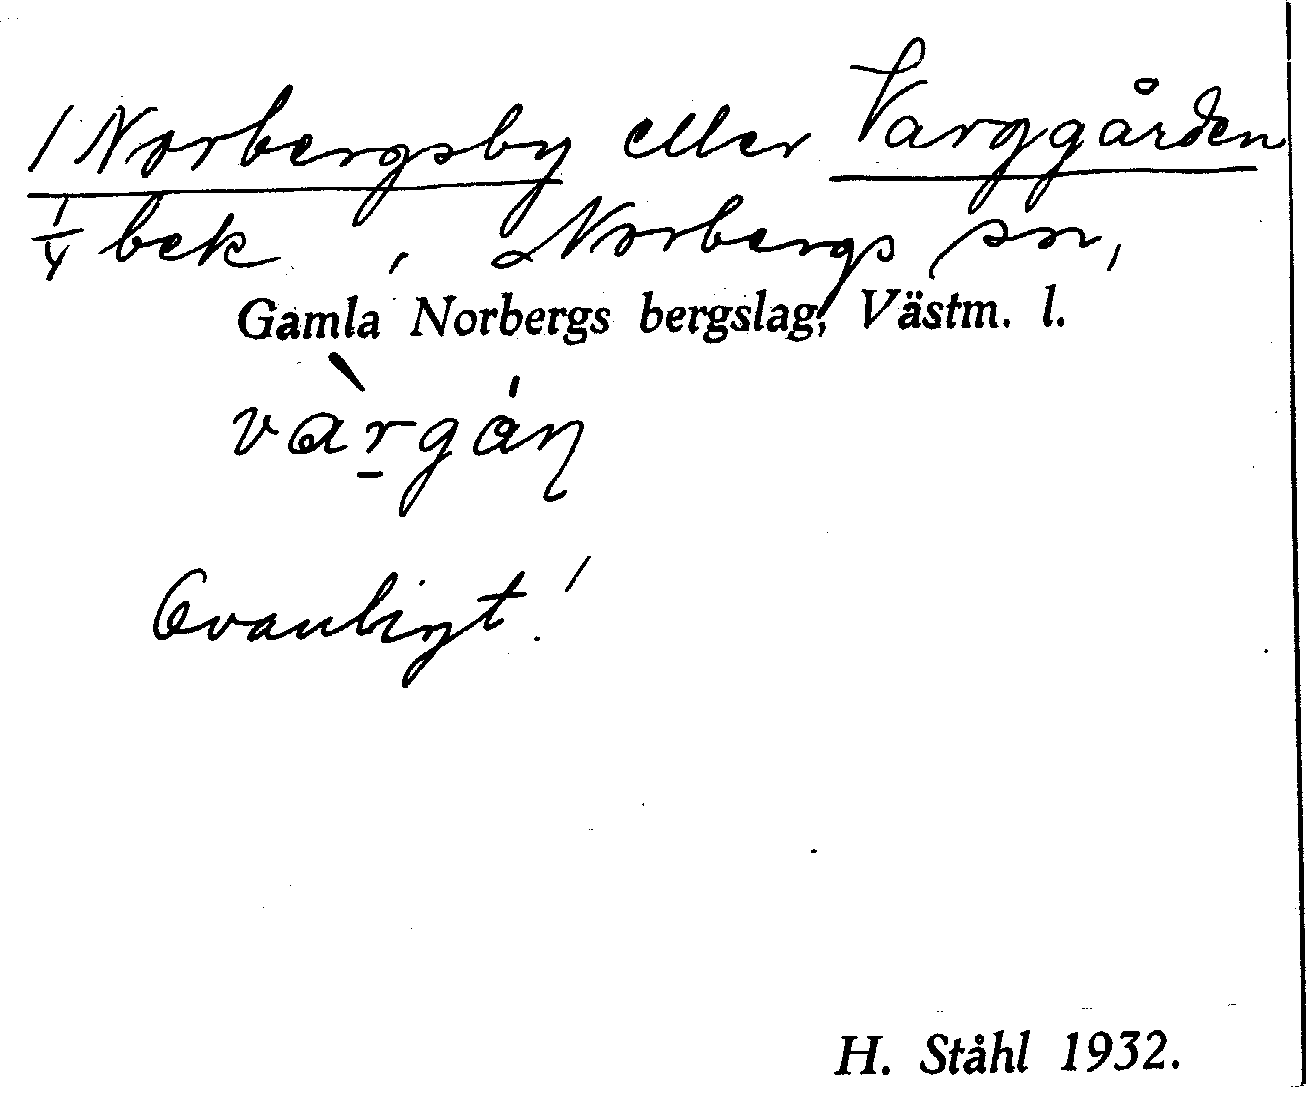 1 Norbergsby eller Varggården
1/4 bek , Norbergs sn,
Gamla Norbergs bergslag, Västm. l.
vàr̠gá̊ɳ
Ovanligt!
H. Ståhl 1932.